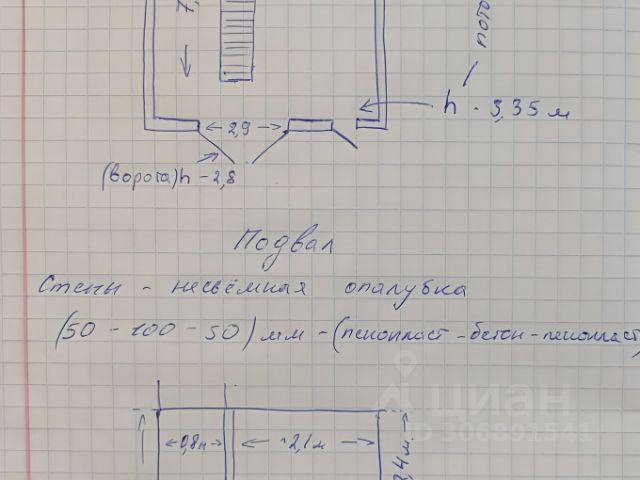 2,9
h - 3,35 м
(ворота) h - 2,8
Подвал
Стены - несъёмная опалубка
(50 - 100 - 50) мм - (пенопласт - бетон - пенопласт)
0,8м
2,1м
циан